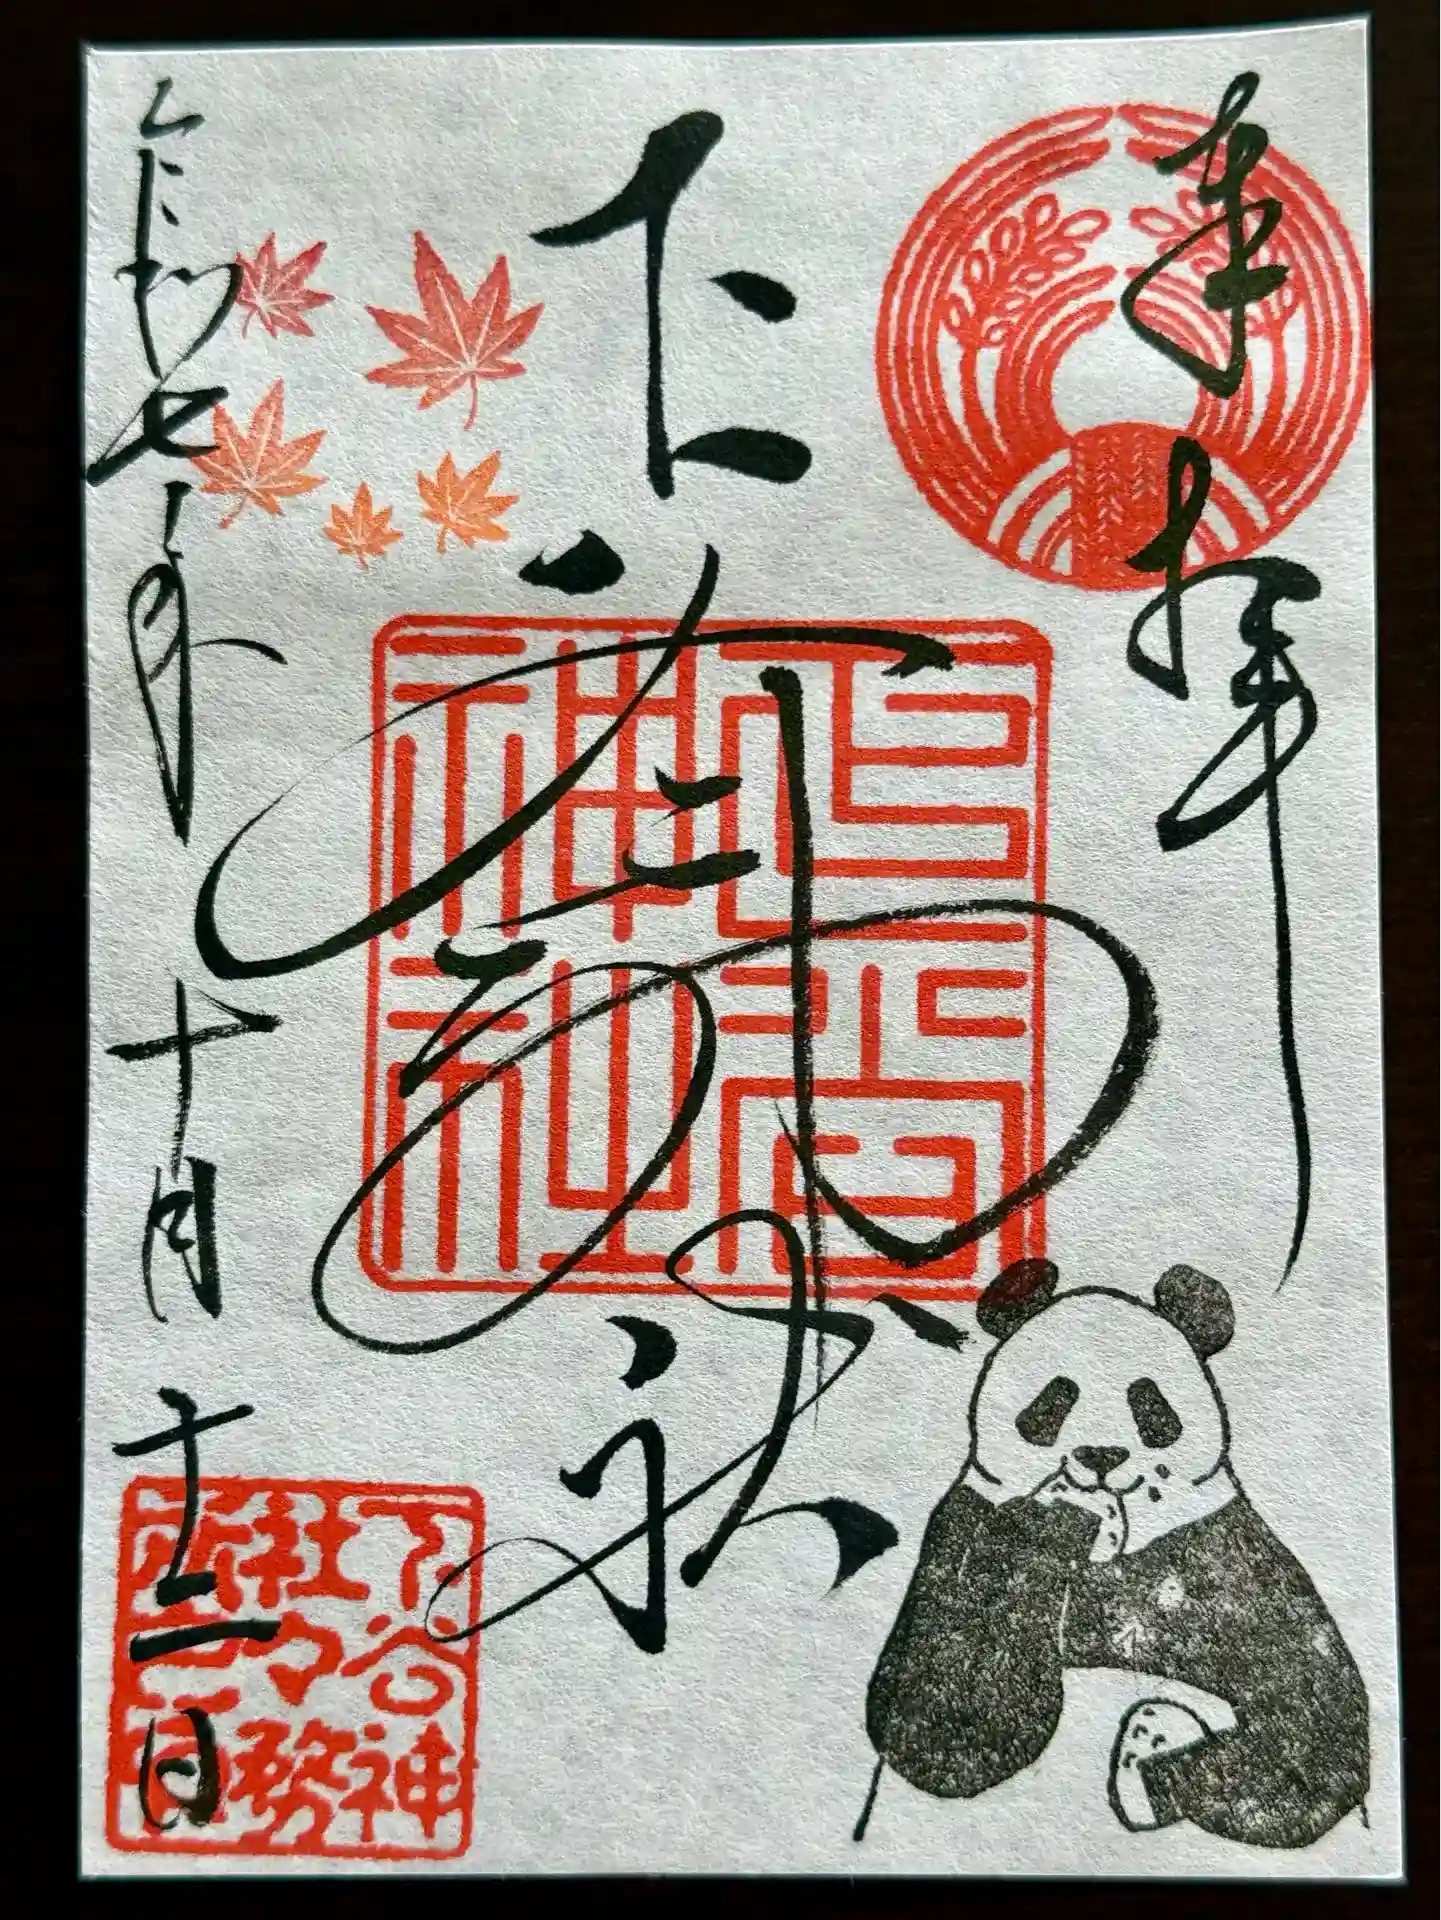 奉拝
下谷神社
下谷神社
令和七年十月十二日
下谷神
社々務
所之印